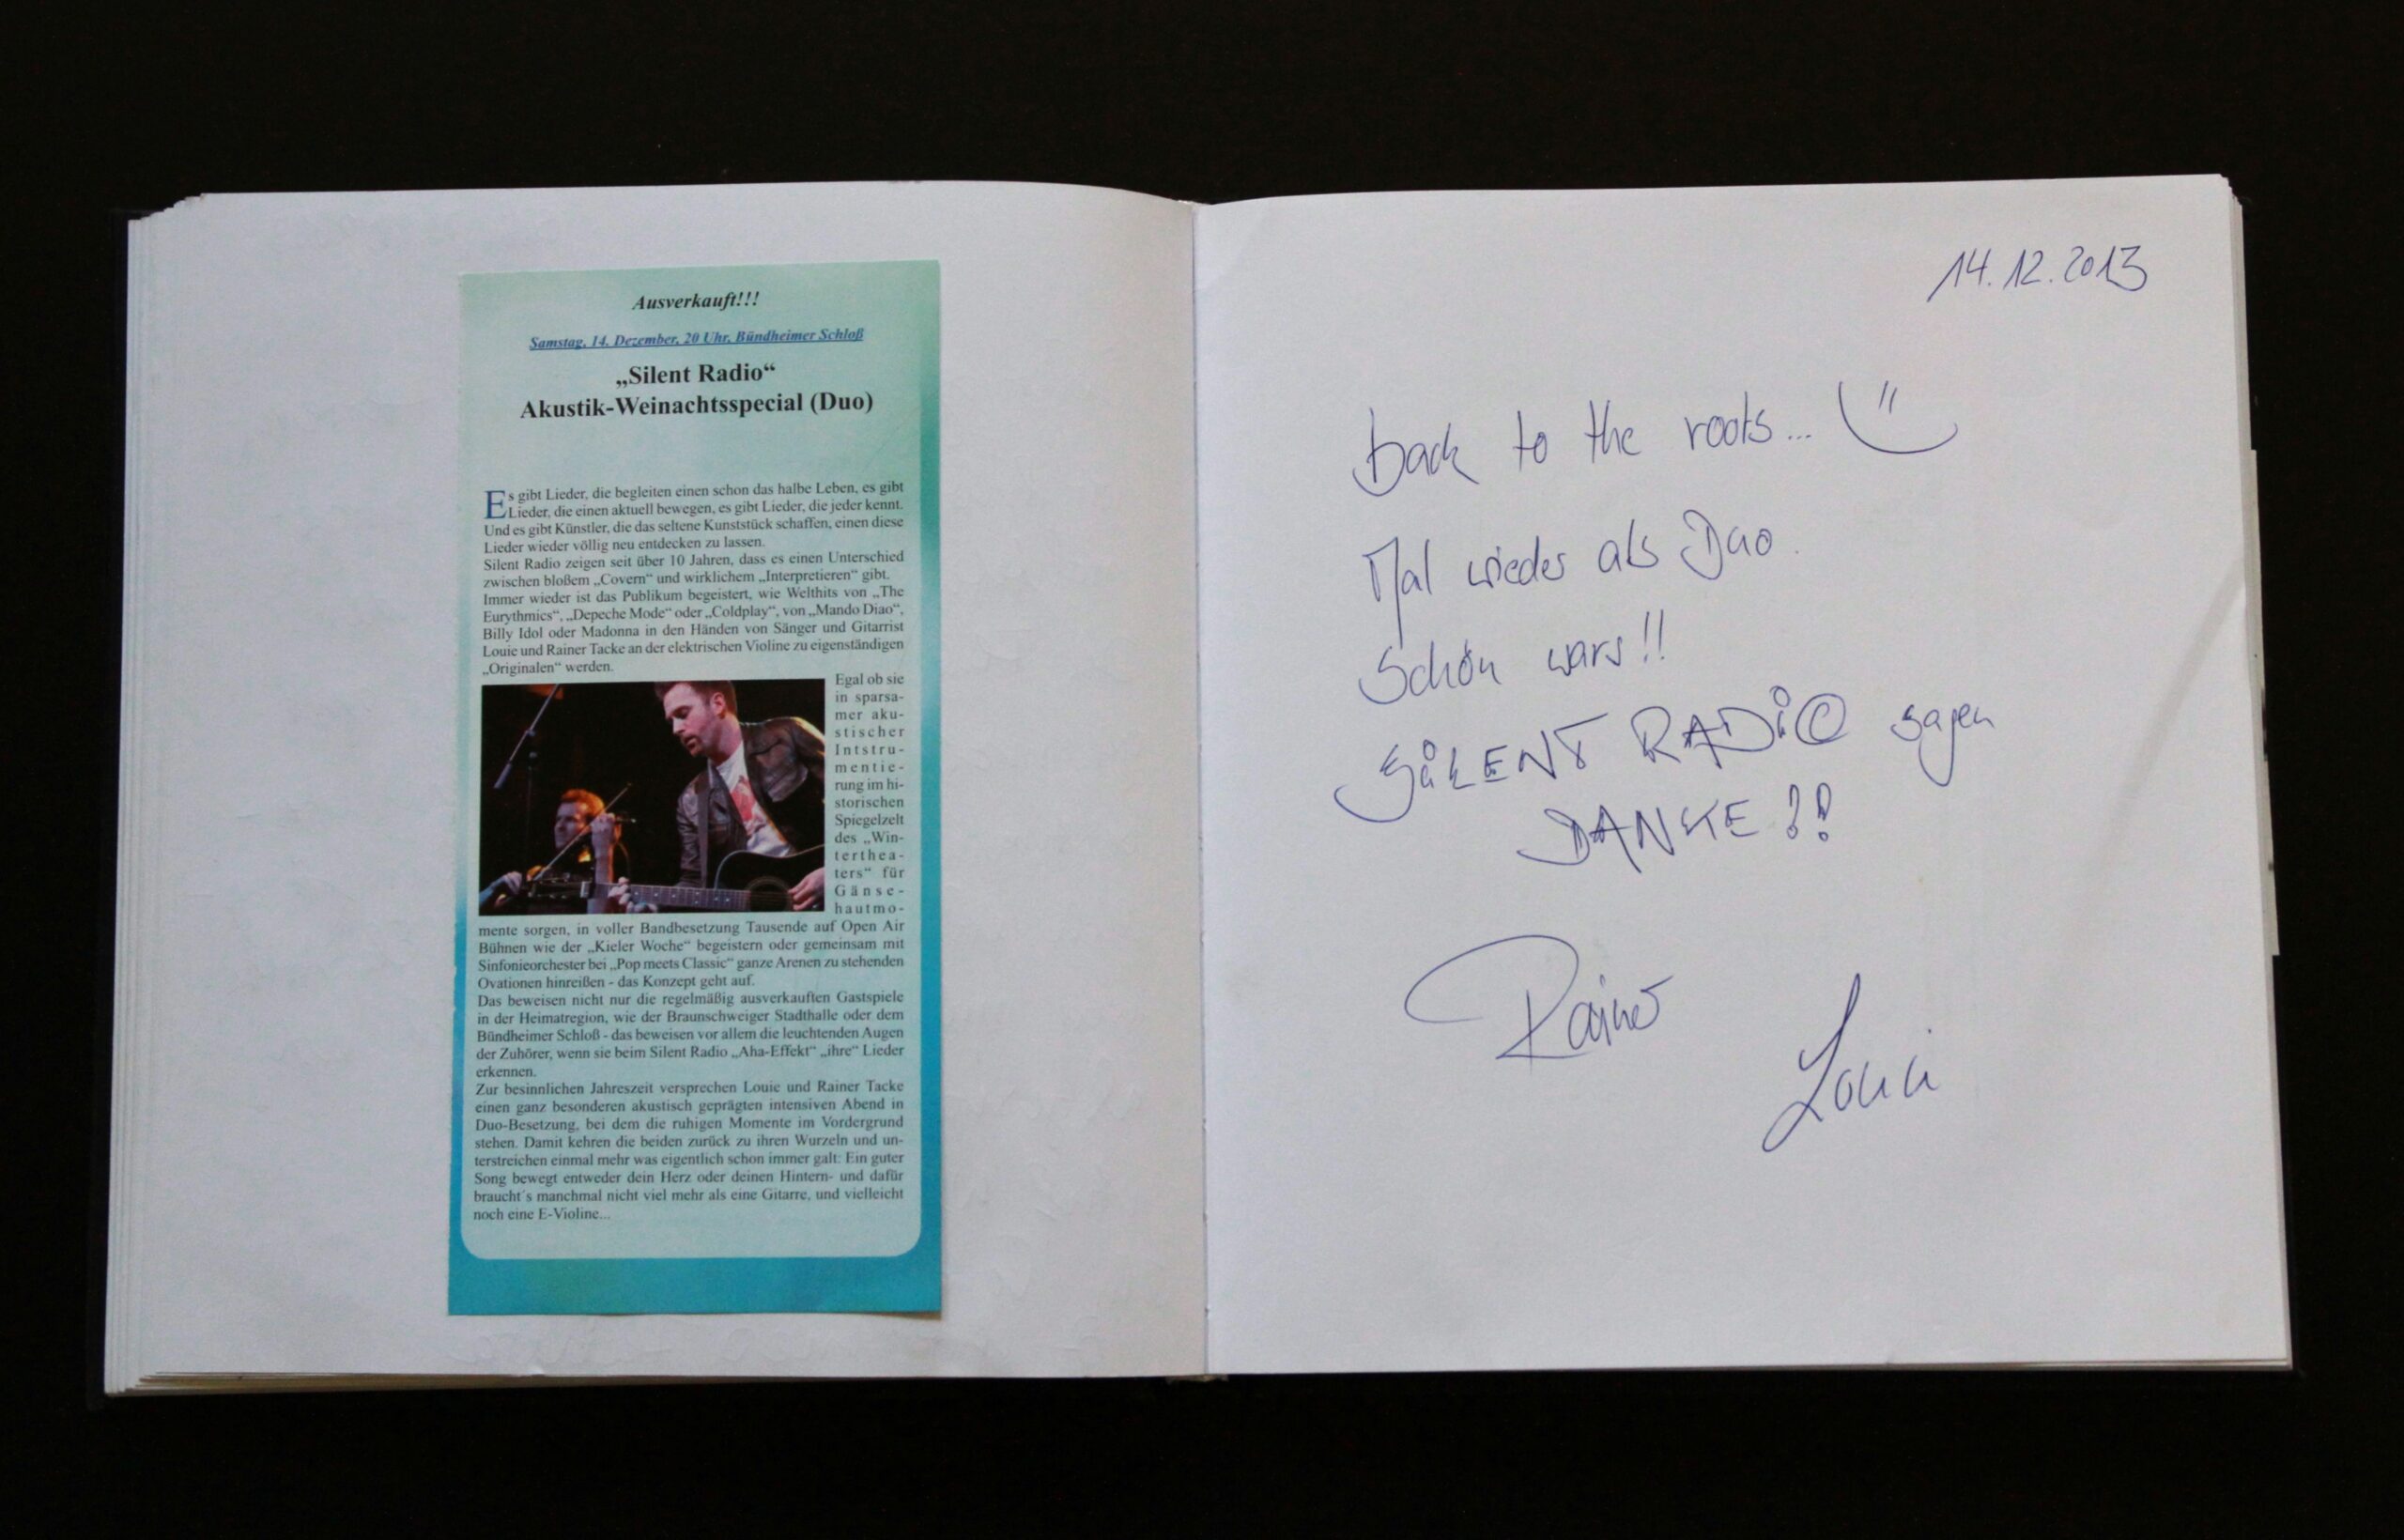 Ausverkauft!!!
Samstag, 14. Dezember, 20 Uhr, Bündheimer Schloß
„Silent Radio“
Akustik-Weinachtsspecial (Duo)
Es gibt Lieder, die begleiten einen schon das halbe Leben, es gibt
Lieder, die einen aktuell bewegen, es gibt Lieder, die jeder kennt.
Und es gibt Künstler, die das seltene Kunststück schaffen, einen diese
Lieder wieder völlig neu entdecken zu lassen.
Silent Radio zeigen seit über 10 Jahren, dass es einen Unterschied
zwischen bloßem „Covern“ und wirklichem „Interpretieren“ gibt.
Immer wieder ist das Publikum begeistert, wie Welthits von „The
Eurythmics“, „Depeche Mode“ oder „Coldplay“, von „Mando Diao“,
Billy Idol oder Madonna in den Händen von Sänger und Gitarrist
Louie und Rainer Tacke an der elektrischen Violine zu eigenständigen
„Originalen“ werden.
Egal ob sie
in sparsa-
mer aku-
stischer
Intstru-
mentie-
rung im hi-
storischen
Spiegelzelt
des „Win-
terthea-
ters“ für
Gänse-
hautmo-
mente sorgen, in voller Bandbesetzung Tausende auf Open Air
Bühnen wie der „Kieler Woche“ begeistern oder gemeinsam mit
Sinfonieorchester bei „Pop meets Classic“ ganze Arenen zu stehenden
Ovationen hinreißen - das Konzept geht auf.
Das beweisen nicht nur die regelmäßig ausverkauften Gastspiele
in der Heimatregion, wie der Braunschweiger Stadthalle oder dem
Bündheimer Schloß - das beweisen vor allem die leuchtenden Augen
der Zuhörer, wenn sie beim Silent Radio „Aha-Effekt“ „ihre“ Lieder
erkennen.
Zur besinnlichen Jahreszeit versprechen Louie und Rainer Tacke
einen ganz besonderen akustisch geprägten intensiven Abend in
Duo-Besetzung, bei dem die ruhigen Momente im Vordergrund
stehen. Damit kehren die beiden zurück zu ihren Wurzeln und un-
terstreichen einmal mehr was eigentlich schon immer galt: Ein guter
Song bewegt entweder dein Herz oder deinen Hintern- und dafür
braucht´s manchmal nicht viel mehr als eine Gitarre, und vielleicht
noch eine E-Violine...
14.12.2013
back to the roots...
Mal wieder als Duo.
Schön wars!!
SiLENT RADiO sagen
DANKE!!
Rainer
Louie